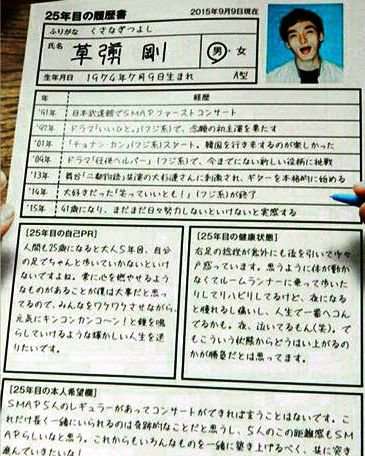 25年目の履歴書
2015年9月9日現在
ふりがな くさなぎつよし
氏名 草彅 剛
男・女
生年月日 1974年7月9日生まれ A型
年 経歴
'91年 日本武道館でSMAPファーストコンサート
'97年 ドラマ「いいひと。」(フジ系)で、念願の初主演を果たす
'01年 「チョナン・カン」(フジ系)スタート。韓国を行き来するのが楽しかった
'09年 ドラマ「任侠ヘルパー」(フジ系)で、今までにない新しい役柄に挑戦
'13年 舞台「二都物語」共演の大杉漣さんに刺激され、ギターを本格的に始める
'14年 大好きだった「笑っていいとも!」(フジ系)が終了
'15年 41歳になり、まだまだ日々努力しないといけないと実感する
[25年目の自己PR]
人間も25歳になると大人5年目。自分
の足でちゃんと歩いていかないといけ
ないですよね。常に心を燃やせるよう
なものがあることが僕は大事だと思っ
てるので、みんなをワクワクさせながら、
元気にキンコンカンコーン!と鐘を鳴
らしていけるような輝かしい人生を送
りたいです。
[25年目の健康状態]
右足の捻挫が意外にも後を引いて少々
戸惑っています。思うように体が動か
なくてルームランナーに乗って歩いた
りしてリハビリしてるけど、夜になる
と腫れるし痛いし、人生で一番ヘコん
でるかも。夜、泣いてるもん(笑)。で
もこういう状態からどうはい上がるの
かが勝負だとは思ってます。
[25年目の本人希望欄]
SMAP5人のレギュラーがあってコンサートができれば言うことはないです。こ
れだけ長く一緒にいられるのは奇跡的なことだと思うし、5人のこの距離感もSM
APらしいなと思う。これからもいろんなものを一緒に築き上げるべく、共に突き
進んでいきたいな!